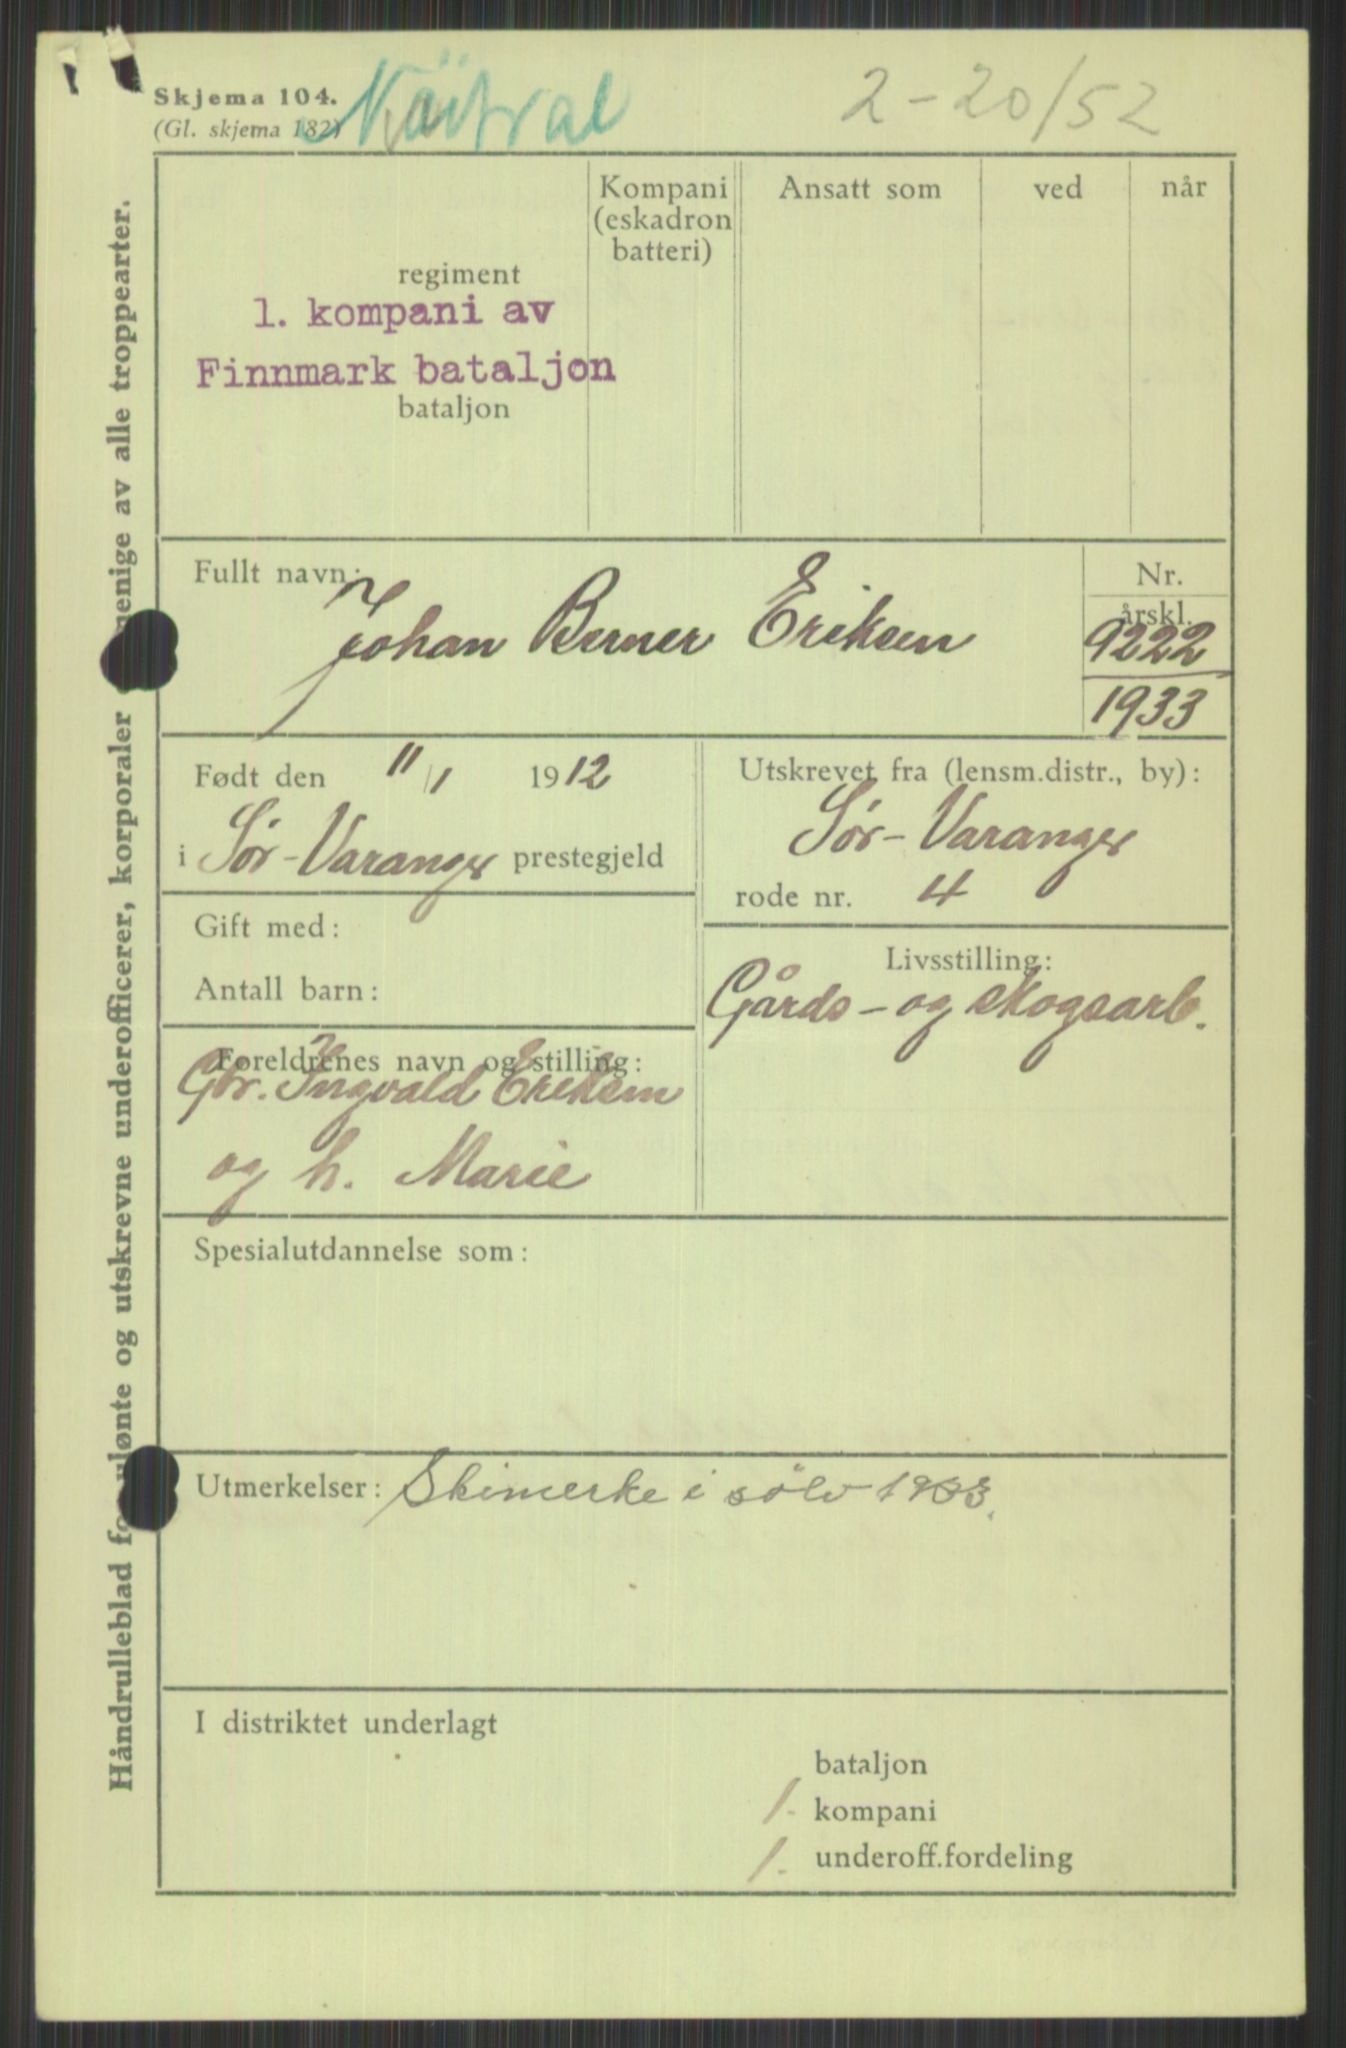 Skjema 104.
(Gl. skjema 182)
2-20/52
Håndrulleblad for ulønte og utskrevne underofficerer, korporaler menige av alle troppearter.
regiment
1. kompani av
Finnmark bataljon
bataljon
Kompani
(eskadron
batteri)
Ansatt som
ved
når
Fullt navn:
Johan Berner Eriksen
Nr.
årskl.
9222
1933
Født den 11/1 1912
i Sør-Varanger prestegjeld
Utskrevet fra (lensm.distr., by):
Sør-Varanger
rode nr. 4
Gift med:
Antall barn:
Livsstilling:
Gårds- og skogsarb.
Foreldrenes navn og stilling:
Gbr. Ingvald Eriksen
og h. Marie
Spesialutdannelse som:
Utmerkelser: Skimerke i sölv 1933.
I distriktet underlagt
bataljon
1. kompani
1. underoff.fordeling